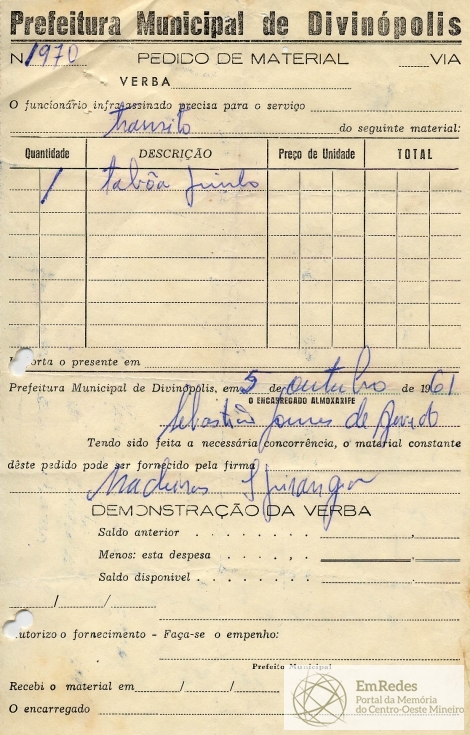 Prefeitura Municipal de Divinópolis
N 1970 PEDIDO DE MATERIAL VIA
VERBA
O funcionário infrapassinado precisa para o serviço
Transito do seguinte material:
Quantidade DESCRIÇÃO Preço de Unidade TOTAL
1 taboa
porta o presente em
Prefeitura Municipal de Divinópolis, em 5 de outubro de 1961
O ENCARREGADO ALMOXARIFE
Sebastião Gomes de
Tendo sido feita a necessária concorrência, o material constante
dêste pedido pode ser fornecido pela firma
DEMONSTRAÇÃO DA VERBA
Saldo anterior
Menos: esta despesa
Saldo disponivel
/ /
utorizo o fornecimento - Faça-se o empenho:
Prefeito Municipal
Recebi o material em / /
O encarregado
EmRedes
Portal da Memória
do Centro-Oeste Mineiro